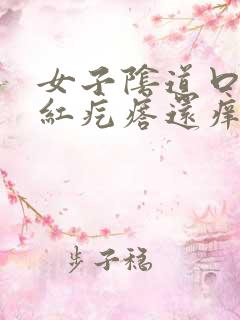 女子陰道口
紅疙瘩還痒
步子稳